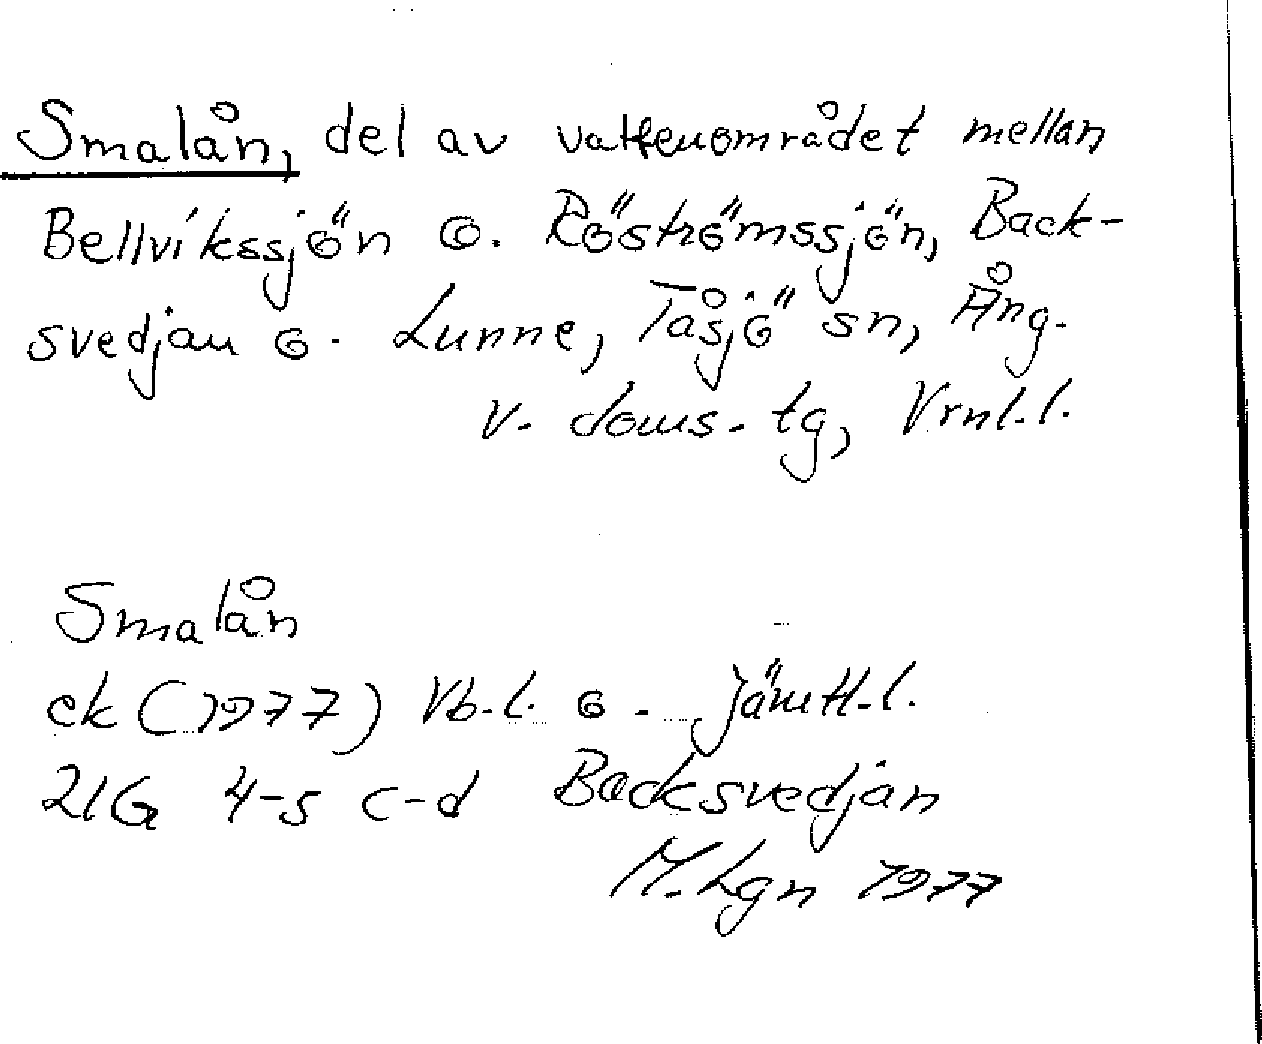 Smalån, del av vattenområdet mellan
Bellvikssjön o. Röströmssjön, Back-
svedjan o. Lunne, Tåsjö sn, Ång.
v. doms. tg, Vrnl.l.
Smalån
ek (1977) Vb.l. o. Jämtl.l.
21G 4-5 c-d Backsvedjan
M. Lgn 1977